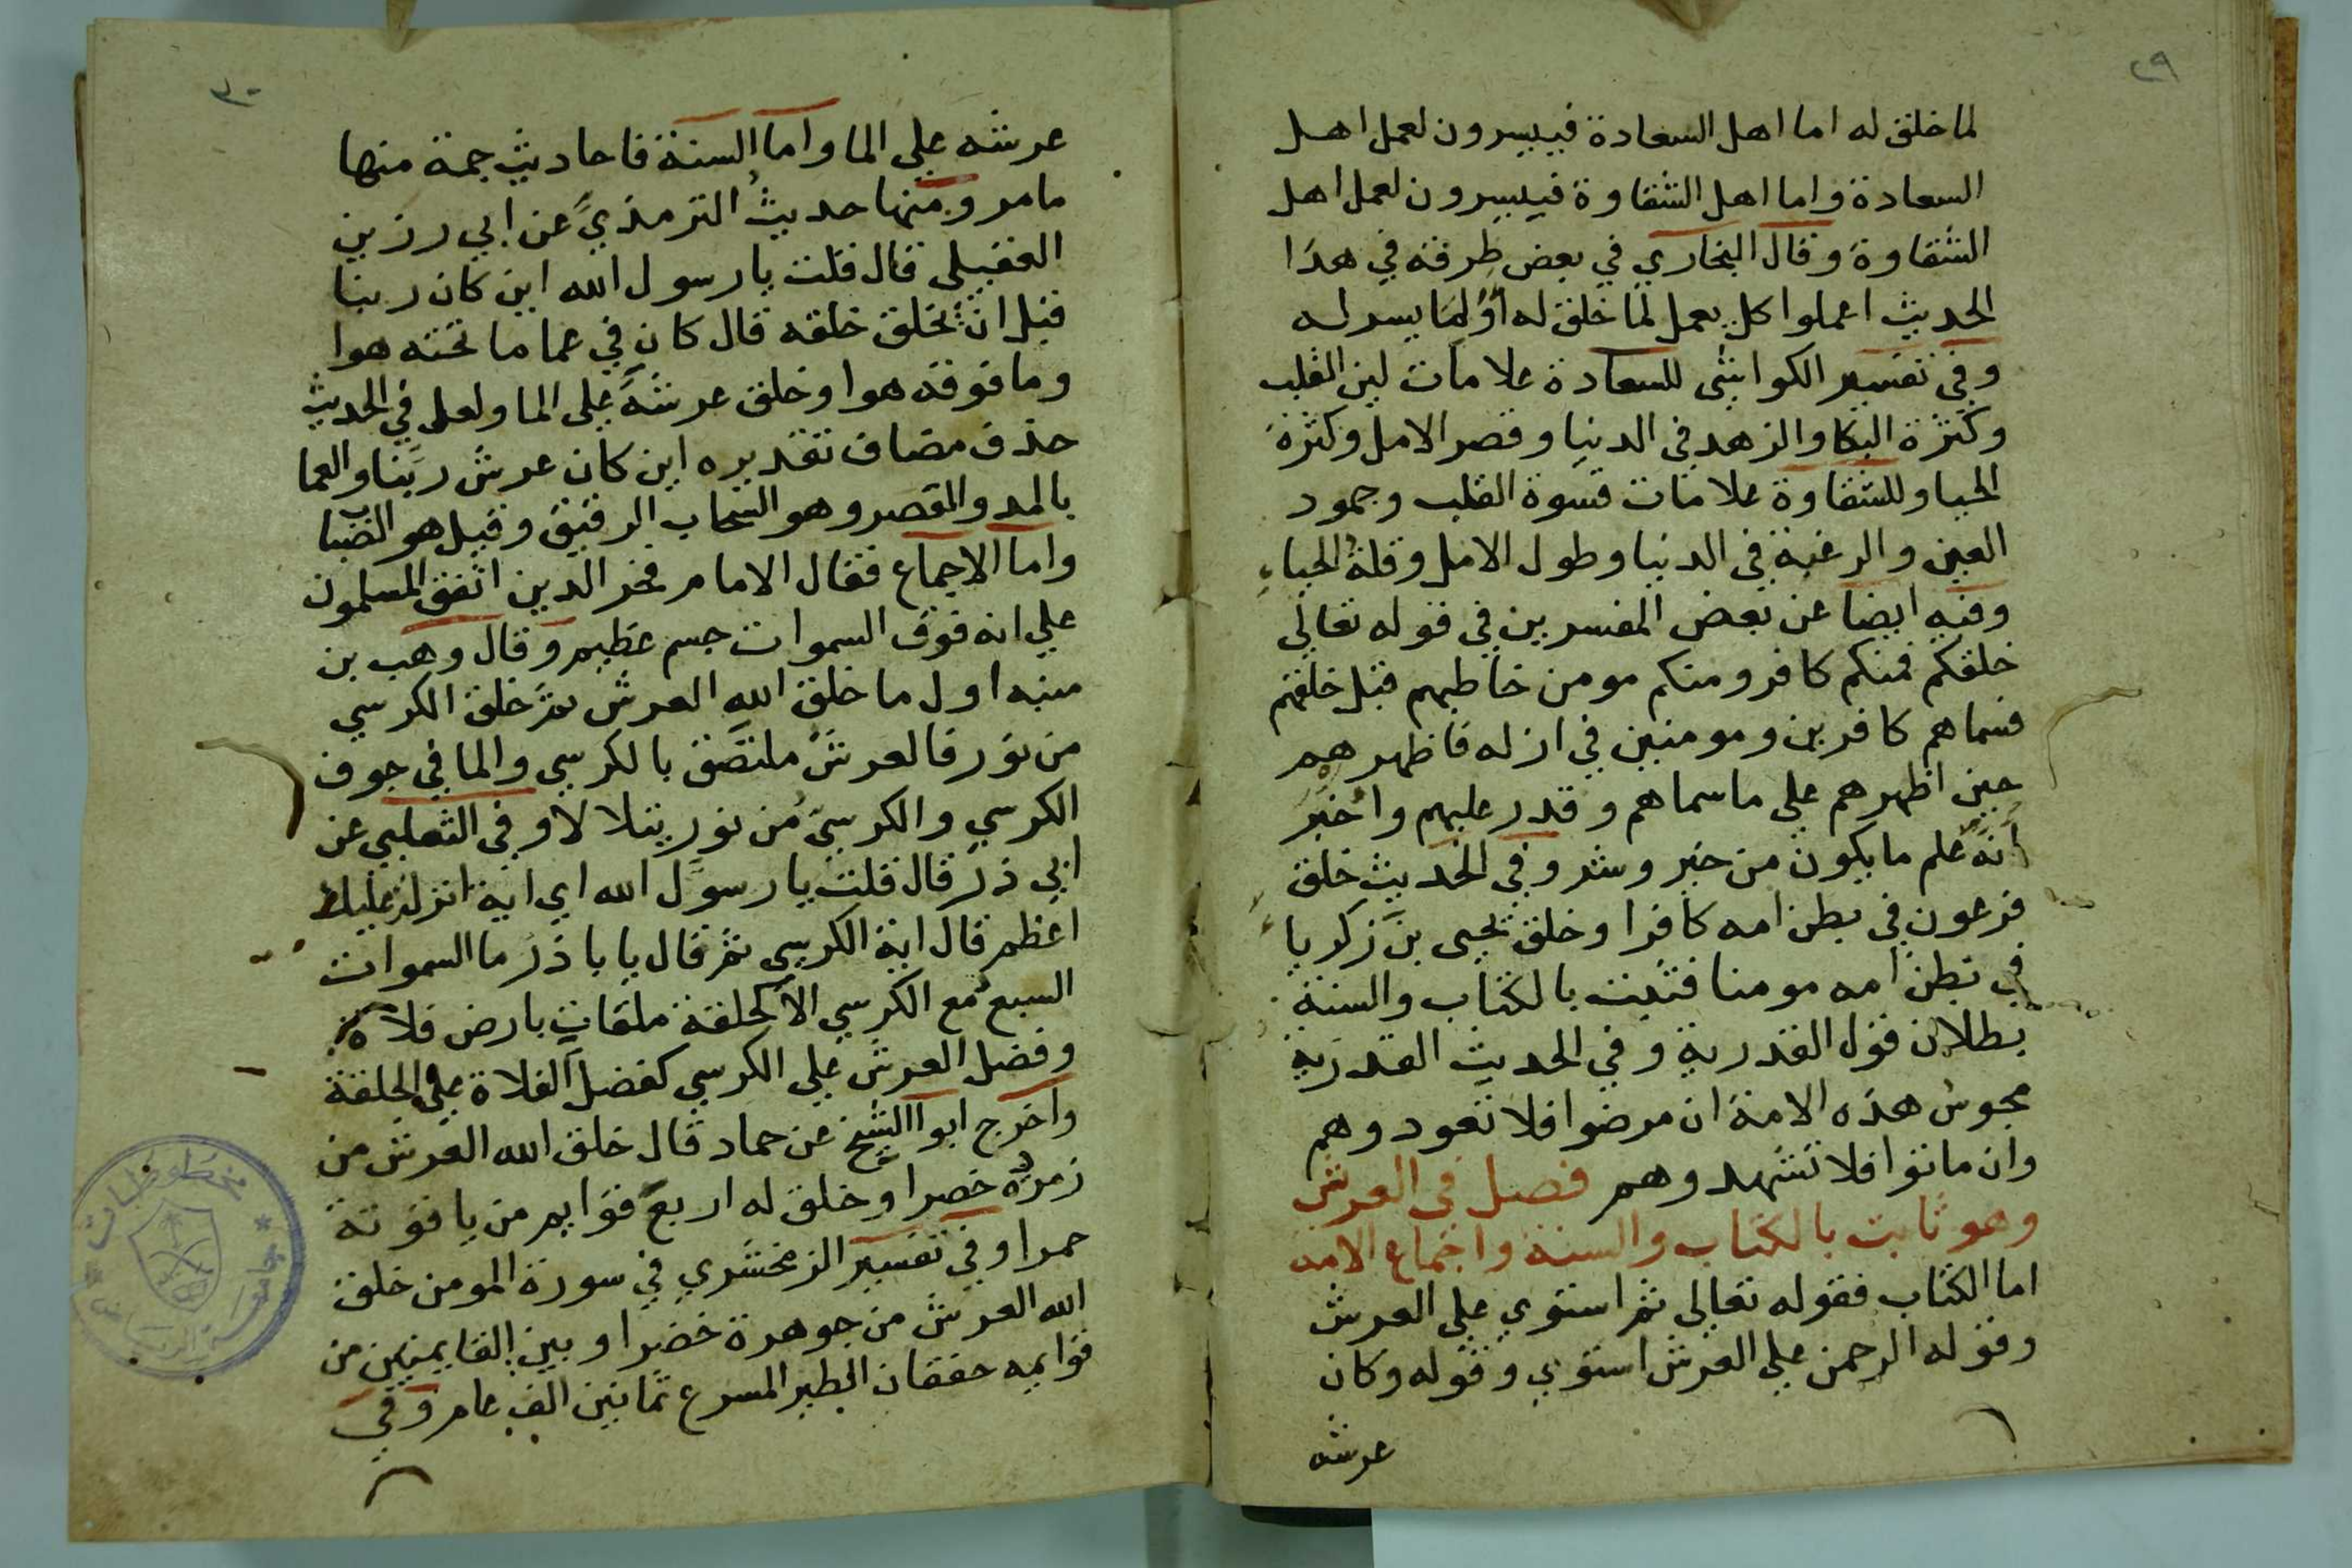 ٢٩
لما خلق له اما اهل السعادة فييسرون لعمل اهل
السعادة واما اهل الشقاوة فييسرون لعمل اهل
الشقاوة وقال البخاري في بعض طرقه في هذا
الحديث اعملوا كل يعمل لما خلق له او لما يسر له
وفي تفسير الكواشى للسعادة علامات لين القلب
وكثرة البكا والزهد في الدنيا وقصر الامل وكثرة
الحيا وللشقاوة علامات قسوة القلب وجمود
العين والرغبة في الدنيا وطول الامل وقلة الحياء
وفيه ايضا عن بعض المفسرين في قوله تعالي
خلقكم فمنكم كافر ومنكم مومن خاطبهم قبل خلقهم
فسماهم كافرين ومومنين في ازله فاظهرهم
حين اظهرهم علي ما سماهم وقدر عليهم واخبر
انه علم ما يكون من خير وشر وفي الحديث خلق
فرعون في بطن امه كافرا وخلق يحيى بن زكريا
في بطن امه مومنا فثبت بالكتاب والسنة
بطلان قول القدرية وفي الحديث القدرية
مجوس هذه الامة ان مرضوا فلا تعودوهم
وان ماتوا فلا تشهدوهم فصل في العرش
وهو ثابت بالكتاب والسنة واجماع الامه
اما الكتاب فقوله تعالي ثم استوي علي العرش
وقوله الرحمن علي العرش استوي وقوله وكان
عرشه
٣٠
عرشه علي الما واما السنة فاحاديث جمة منها
ما مر ومنها حديث الترمذي عن ابي رزين
العقيلي قال قلت يا رسول الله اين كان ربنا
قبل ان يخلق خلقه قال كان في عما ما تحته هوا
وما فوقه هوا وخلق عرشه علي الما ولعل في الحديث
حذف مضاف تقديره اين كان عرش ربنا والعما
بالمد والقصر وهو السحاب الرقيق وقيل هو الضبا
واما الاجماع فقال الامام فخر الدين اتفق المسلمون
علي انه فوق السموات جسم عظيم وقال وهب بن
منبه اول ما خلق الله العرش ثم خلق الكرسي
من نور فالعرش ملتصق بالكرسي والما في جوف
الكرسي والكرسي من نور يتلالا وفي الثعلبي عن
ابي ذر قال قلت يا رسول الله اي اية انزلت عليك
اعظم قال اية الكرسي ثم قال يا با ذر ما السموات
السبع مع الكرسي الا كحلقة ملقات بارض فلاة
وفضل العرش علي الكرسي كفضل الفلاة علي الحلقة
واخرج ابوا الشيخ عن حماد قال خلق الله العرش من
زمردة خضرا وخلق له اربع قوايم من ياقوتة
حمرا وفي تفسير الزمخشري في سورة المومن خلق
الله العرش من جوهرة خضرا وبين القايمتين من
قوايمه خفقان الطير المسرع ثمانين الف عام وفي
مخطوطات
جامعة الرياض